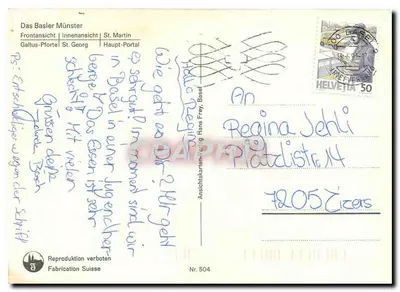 Das Basler Münster
Frontansicht | Innenansicht | St. Martin
Gallus-Pforte | St. Georg | Haupt-Portal
Hallo Regina
Wie geht es Dir? Mir geht
es sehr gut. Im moment sind wir
in Basel in einer Jugendher-
berge. Das Essen ist sehr
schlecht! Mit vielen
Grüssen
PS: Entschuldige wegen der Schrift
Ansichtskartenverlag Hans Frey, Basel
HELVETIA 50
An
Regina Jehli
7205 Zizers
Reproduktion verboten
Fabrication Suisse
Nr. 504